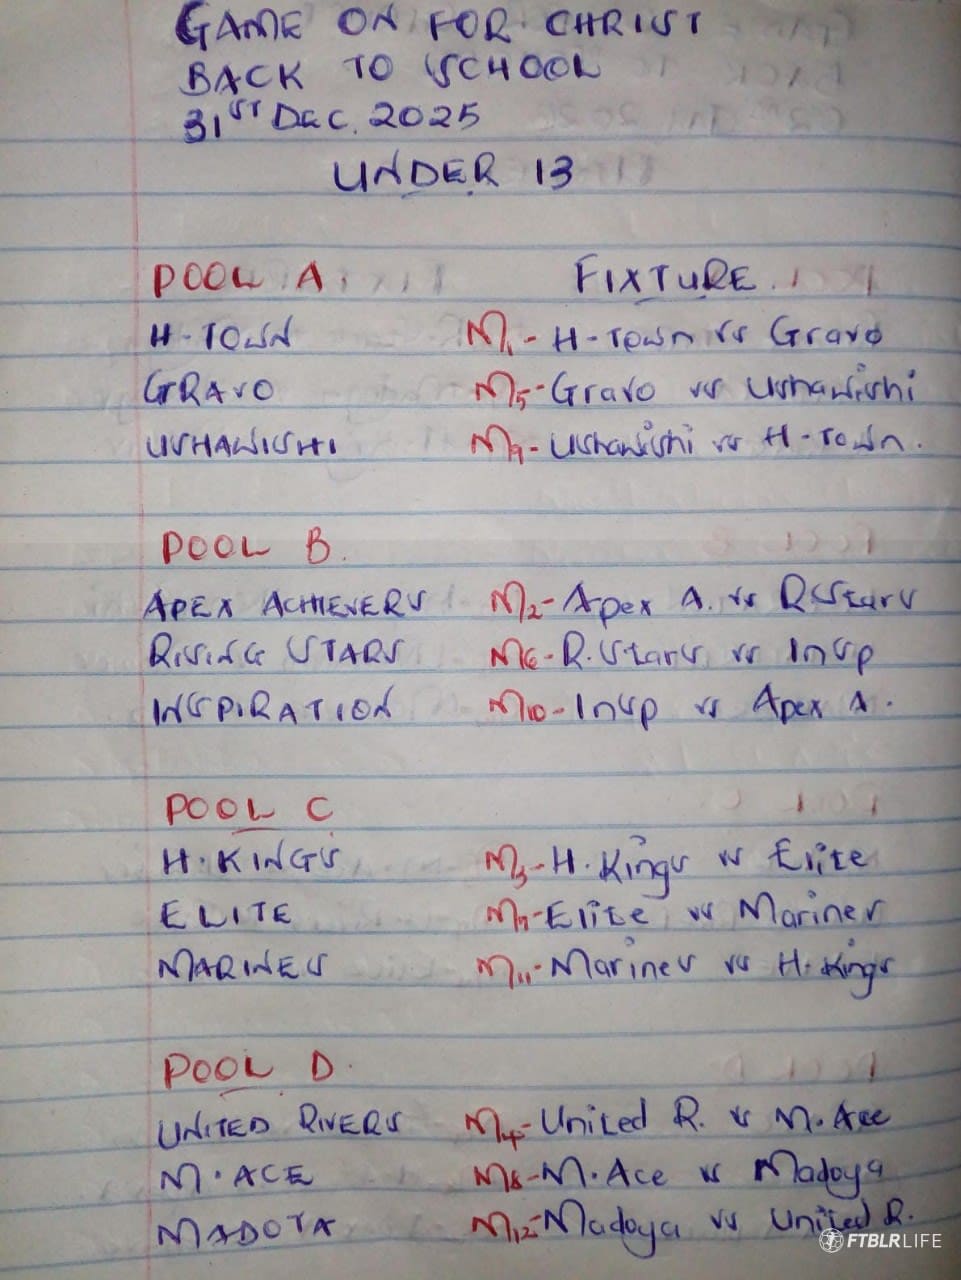 GAME ON FOR CHRIST
BACK TO SCHOOL
31ST DEC. 2025
UNDER 13
POOL A. FIXTURE.
H-TOWN M1- H-Town vs Gravo
GRAVO M5- Gravo vs Ushawishi
USHAWISHI M9- Ushawishi vs H-Town.
POOL B.
APEX ACHIEVERS M2- Apex A. vs R Stars
RISING STARS M6- R. Stars vs Insp
INSPIRATION M10- Insp vs Apex A.
POOL C
H. KINGS M3- H. Kings vs Elite
ELITE M7- Elite vs Marines
MARINES M11- Marines vs H. Kings
POOL D.
UNITED RIVERS M4- United R. vs M. Ace
M. ACE M8- M. Ace vs Madoya
MADOYA M12- Madoya vs United R.
FTBLRLIFE